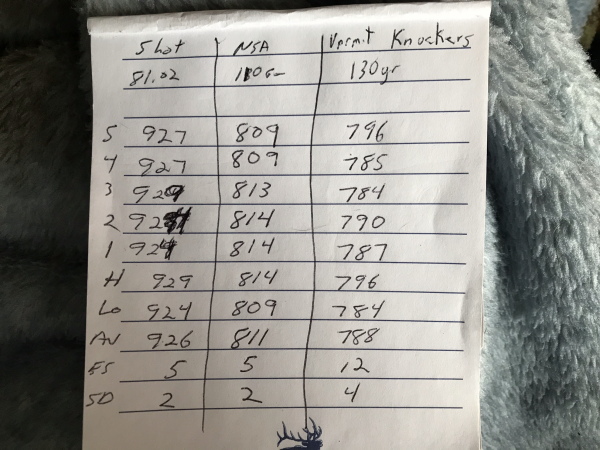 Shot NSA Vermit Knockers
81.02 110G 130gr
5 927 809 796
4 927 809 785
3 929 813 784
2 924 814 790
1 924 814 787
H 929 814 796
Lo 924 809 784
AV 926 811 788
ES 5 5 12
SD 2 2 4